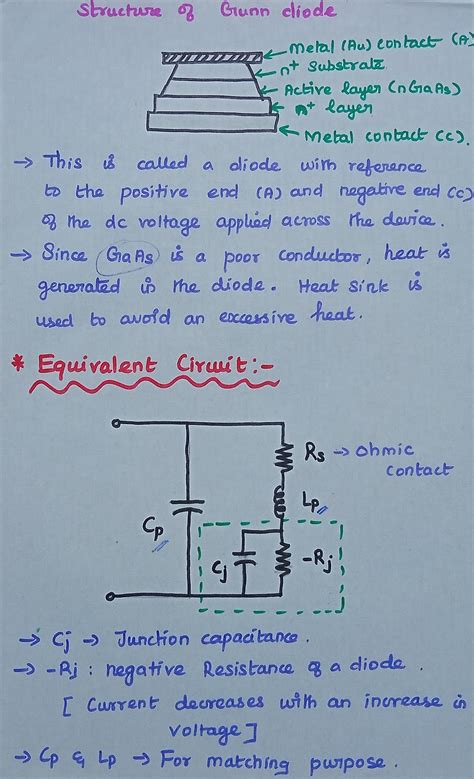 Structure of Gunn diode
Metal (Au) contact (A)
n+ substrate
Active layer (nGaAs)
n+ layer
Metal contact (C).
→ This is called a diode with reference
to the positive end (A) and negative end (C)
of the dc voltage applied across the device.
→ Since GaAs is a poor conductor, heat is
generated in the diode. Heat sink is
used to avoid an excessive heat.
* Equivalent Circuit:-
Rs → Ohmic
contact
Lp
Cp
Cj
-Rj
→ Cj → Junction capacitance.
→ -Rj : negative Resistance of a diode.
[ Current decreases with an increase in
voltage ]
→ Cp & Lp → For matching purpose.